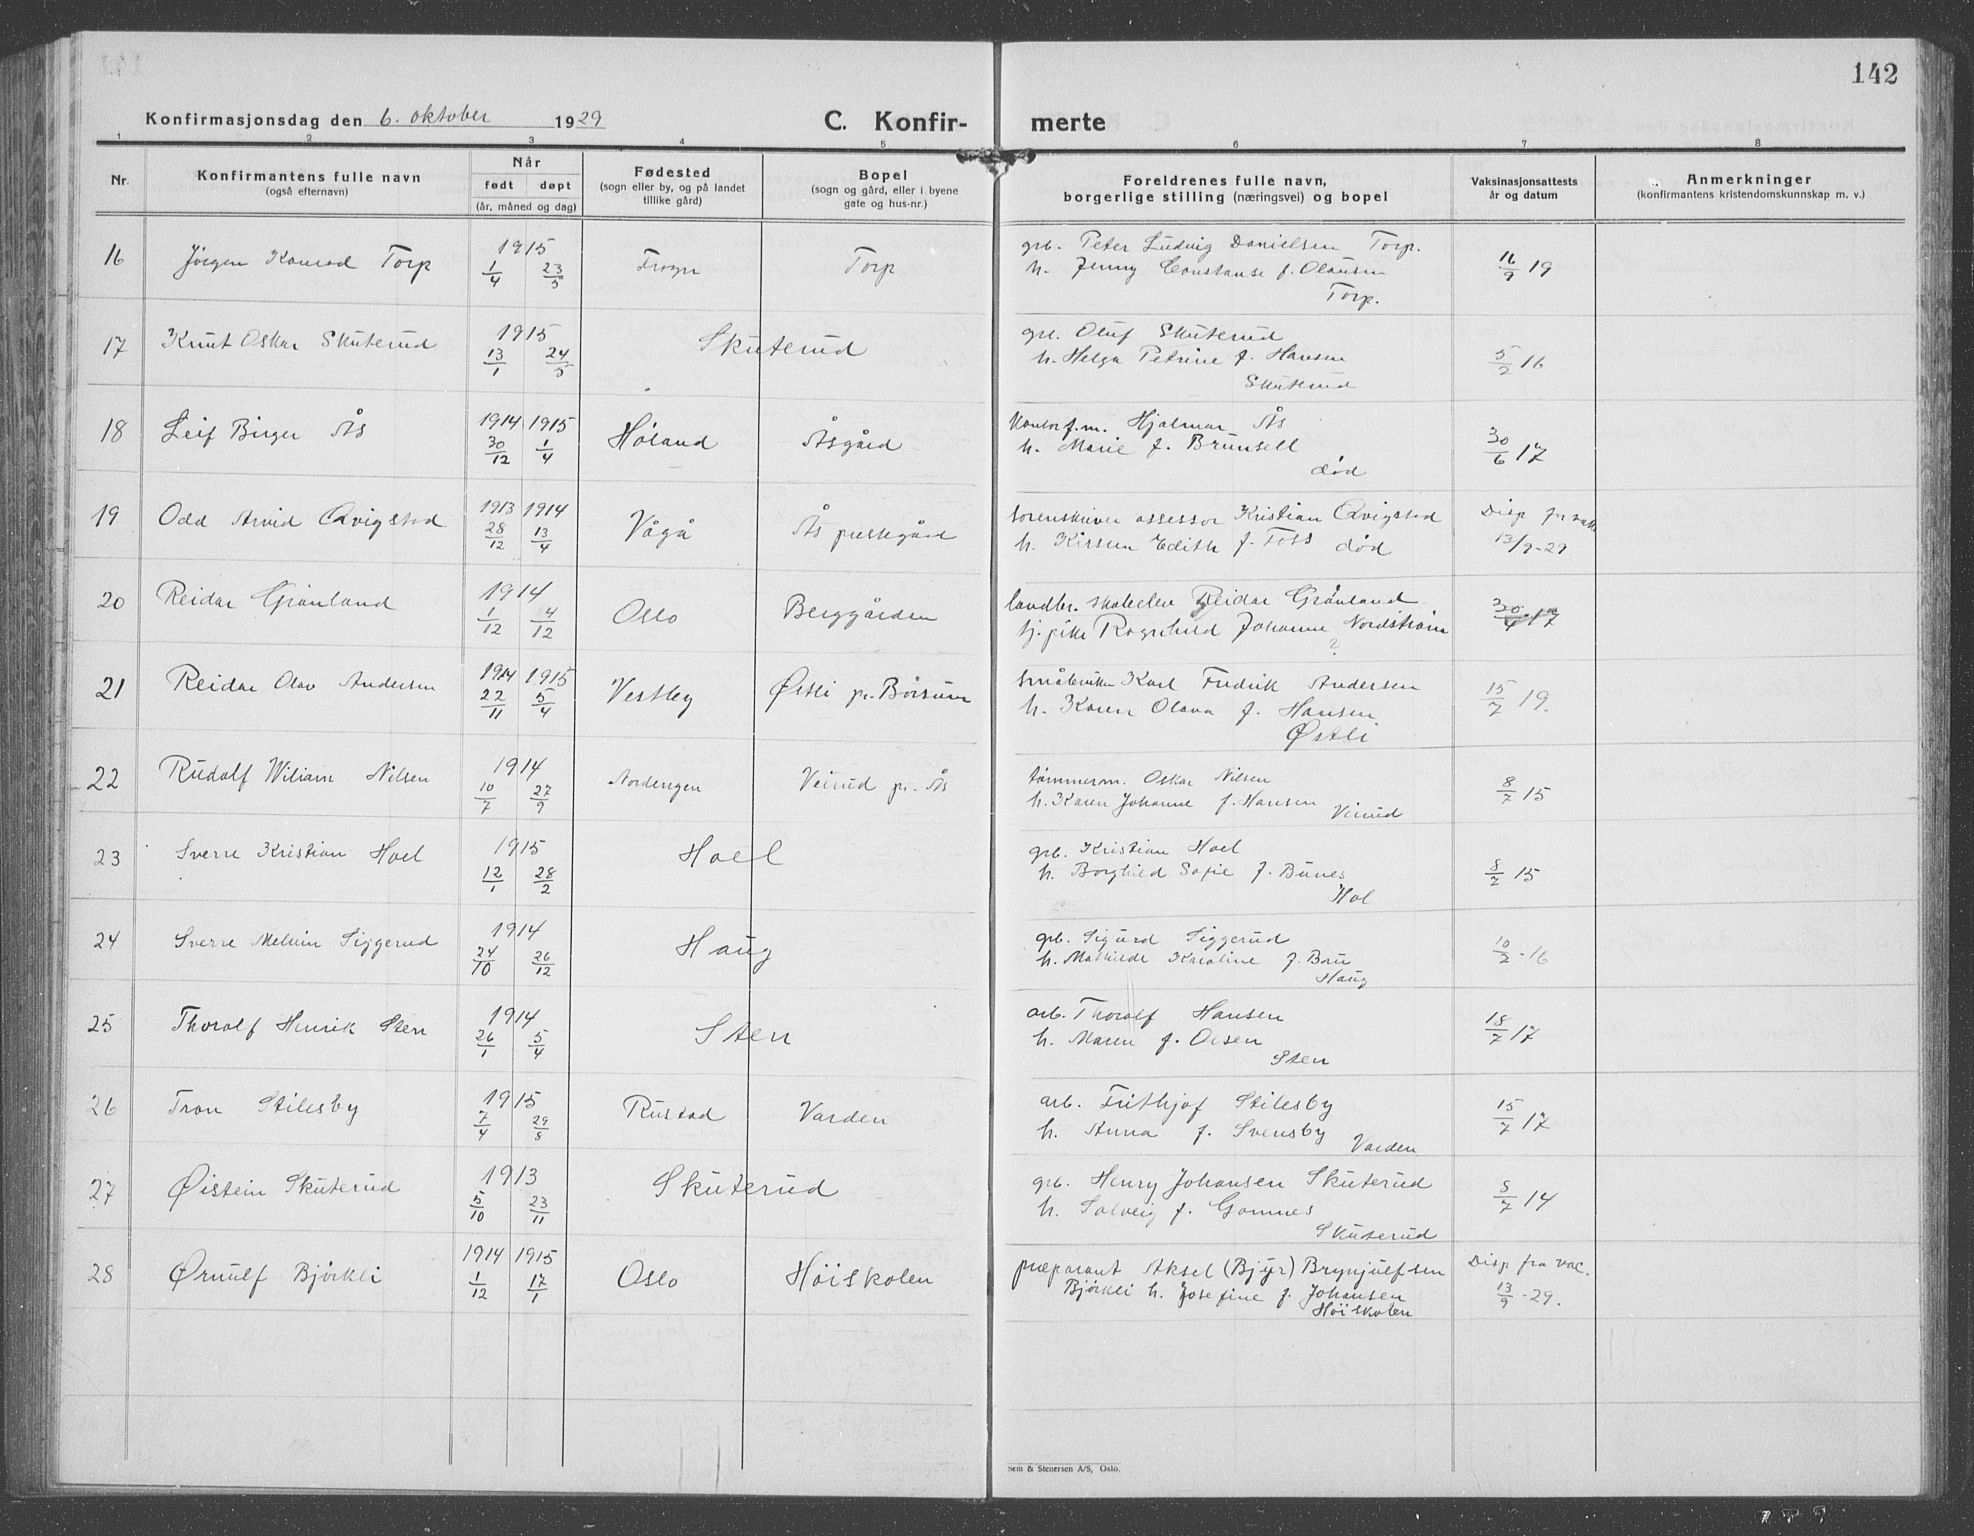 142
Konfirmasjonsdag den 6. oktober 1929
C. Konfir- merte
1 2 3 4 5 6 7 8
Nr. Konfirmantens fulle navn (også efternavn) Når født døpt (år, måned og dag) Fødested (sogn eller by, og på landet tillike gård) Bopel (sogn og gård, eller i byene gate og hus-nr.) Foreldrenes fulle navn, borgerlige stilling (næringsvei) og bopel Vaksinasjonsattests år og datum Anmerkninger (konfirmantens kristendomskunnskap m. v.)
16 Jørgen Konrad Torp 1915 1/4 23/5 Frogn Torp grb. Peter Ludvig Danielsen Torp.
h. Jenny Constanse f. Olausen
Torp. 16/9 19
17 Knut Oskar Skuterud 1915 13/1 24/5 Skuterud grb. Oluf Skuterud
h. Helga Petrine f. Hansen
Skuterud 5/2 16
18 Leif Birger Ås 1914 30/12 1915 1/4 Høland Åsgård kontorf.m. Hjalmar Ås
h. Marie f. Brunsell
død 30/6 17
19 Odd Arvid Qvigstad 1913 28/12 1914 13/4 Vågå Ås prestegård sorenskriver assessor Kristian Qvigstad
h. Kirsten Edith f. Foss død Disp fra vakt
13/9-29
20 Reidar Grønland 1914 1/12 4/12 Oslo Berggården landbr. skoleelev Reidar Grønland
tj. pike Ragnhild Johanne Nordstrøm
? 30/4 17
21 Reidar Olav Andersen 1914 22/11 1915 5/4 Vestby Østli pr. Børsum småbruker Karl Fredrik Andersen
h. Karen Olava f. Hansen
Østli 15/7 19.
22 Rudolf Wiliam Nilsen 1914 10/7 27/9 Nordengen Veirud pr. Ås tømmerm. Oskar Nilsen
h. Karen Johanne f. Hansen Veirud 8/7 15
23 Sverre Kristian Hoel 1915 12/1 28/2 Hoel grb. Kristian Hoel
h. Borghild Sofie f. Bunes
Hol 8/7 15
24 Sverre Melvin Siggerud 1914 24/10 26/12 Haug grb. Sigurd Siggerud
h. Mathilde Karoline f. Bru
Haug 10/2-16
25 Thoralf Henrik Sten 1914 26/1 5/4 Sten arb. Thoralf Hansen
h. Maren f. Olsen
Sten 18/7 17
26 Tron Stilesby 1915 7/4 29/8 Rustad Varden arb. Frithjof Stilesby
h. Anna f. Svensby Varden 15/7 17
27 Øistein Skuterud 1913 5/10 23/11 Skuterud grb. Henry Johansen Skuterud
h. Solveig f. Gomnes
Skuterud 8/7 14
28 Ørnulf Bjørkli 1914 1/12 1915 17/1 Oslo Høiskolen preparant Aksel (Bjyr) Brynjulfsen
Bjørkli h. Josefine f. Johansen
Høiskolen Disp fra vac.
13/9-29.
Sem & Stenersen A/S, Oslo.